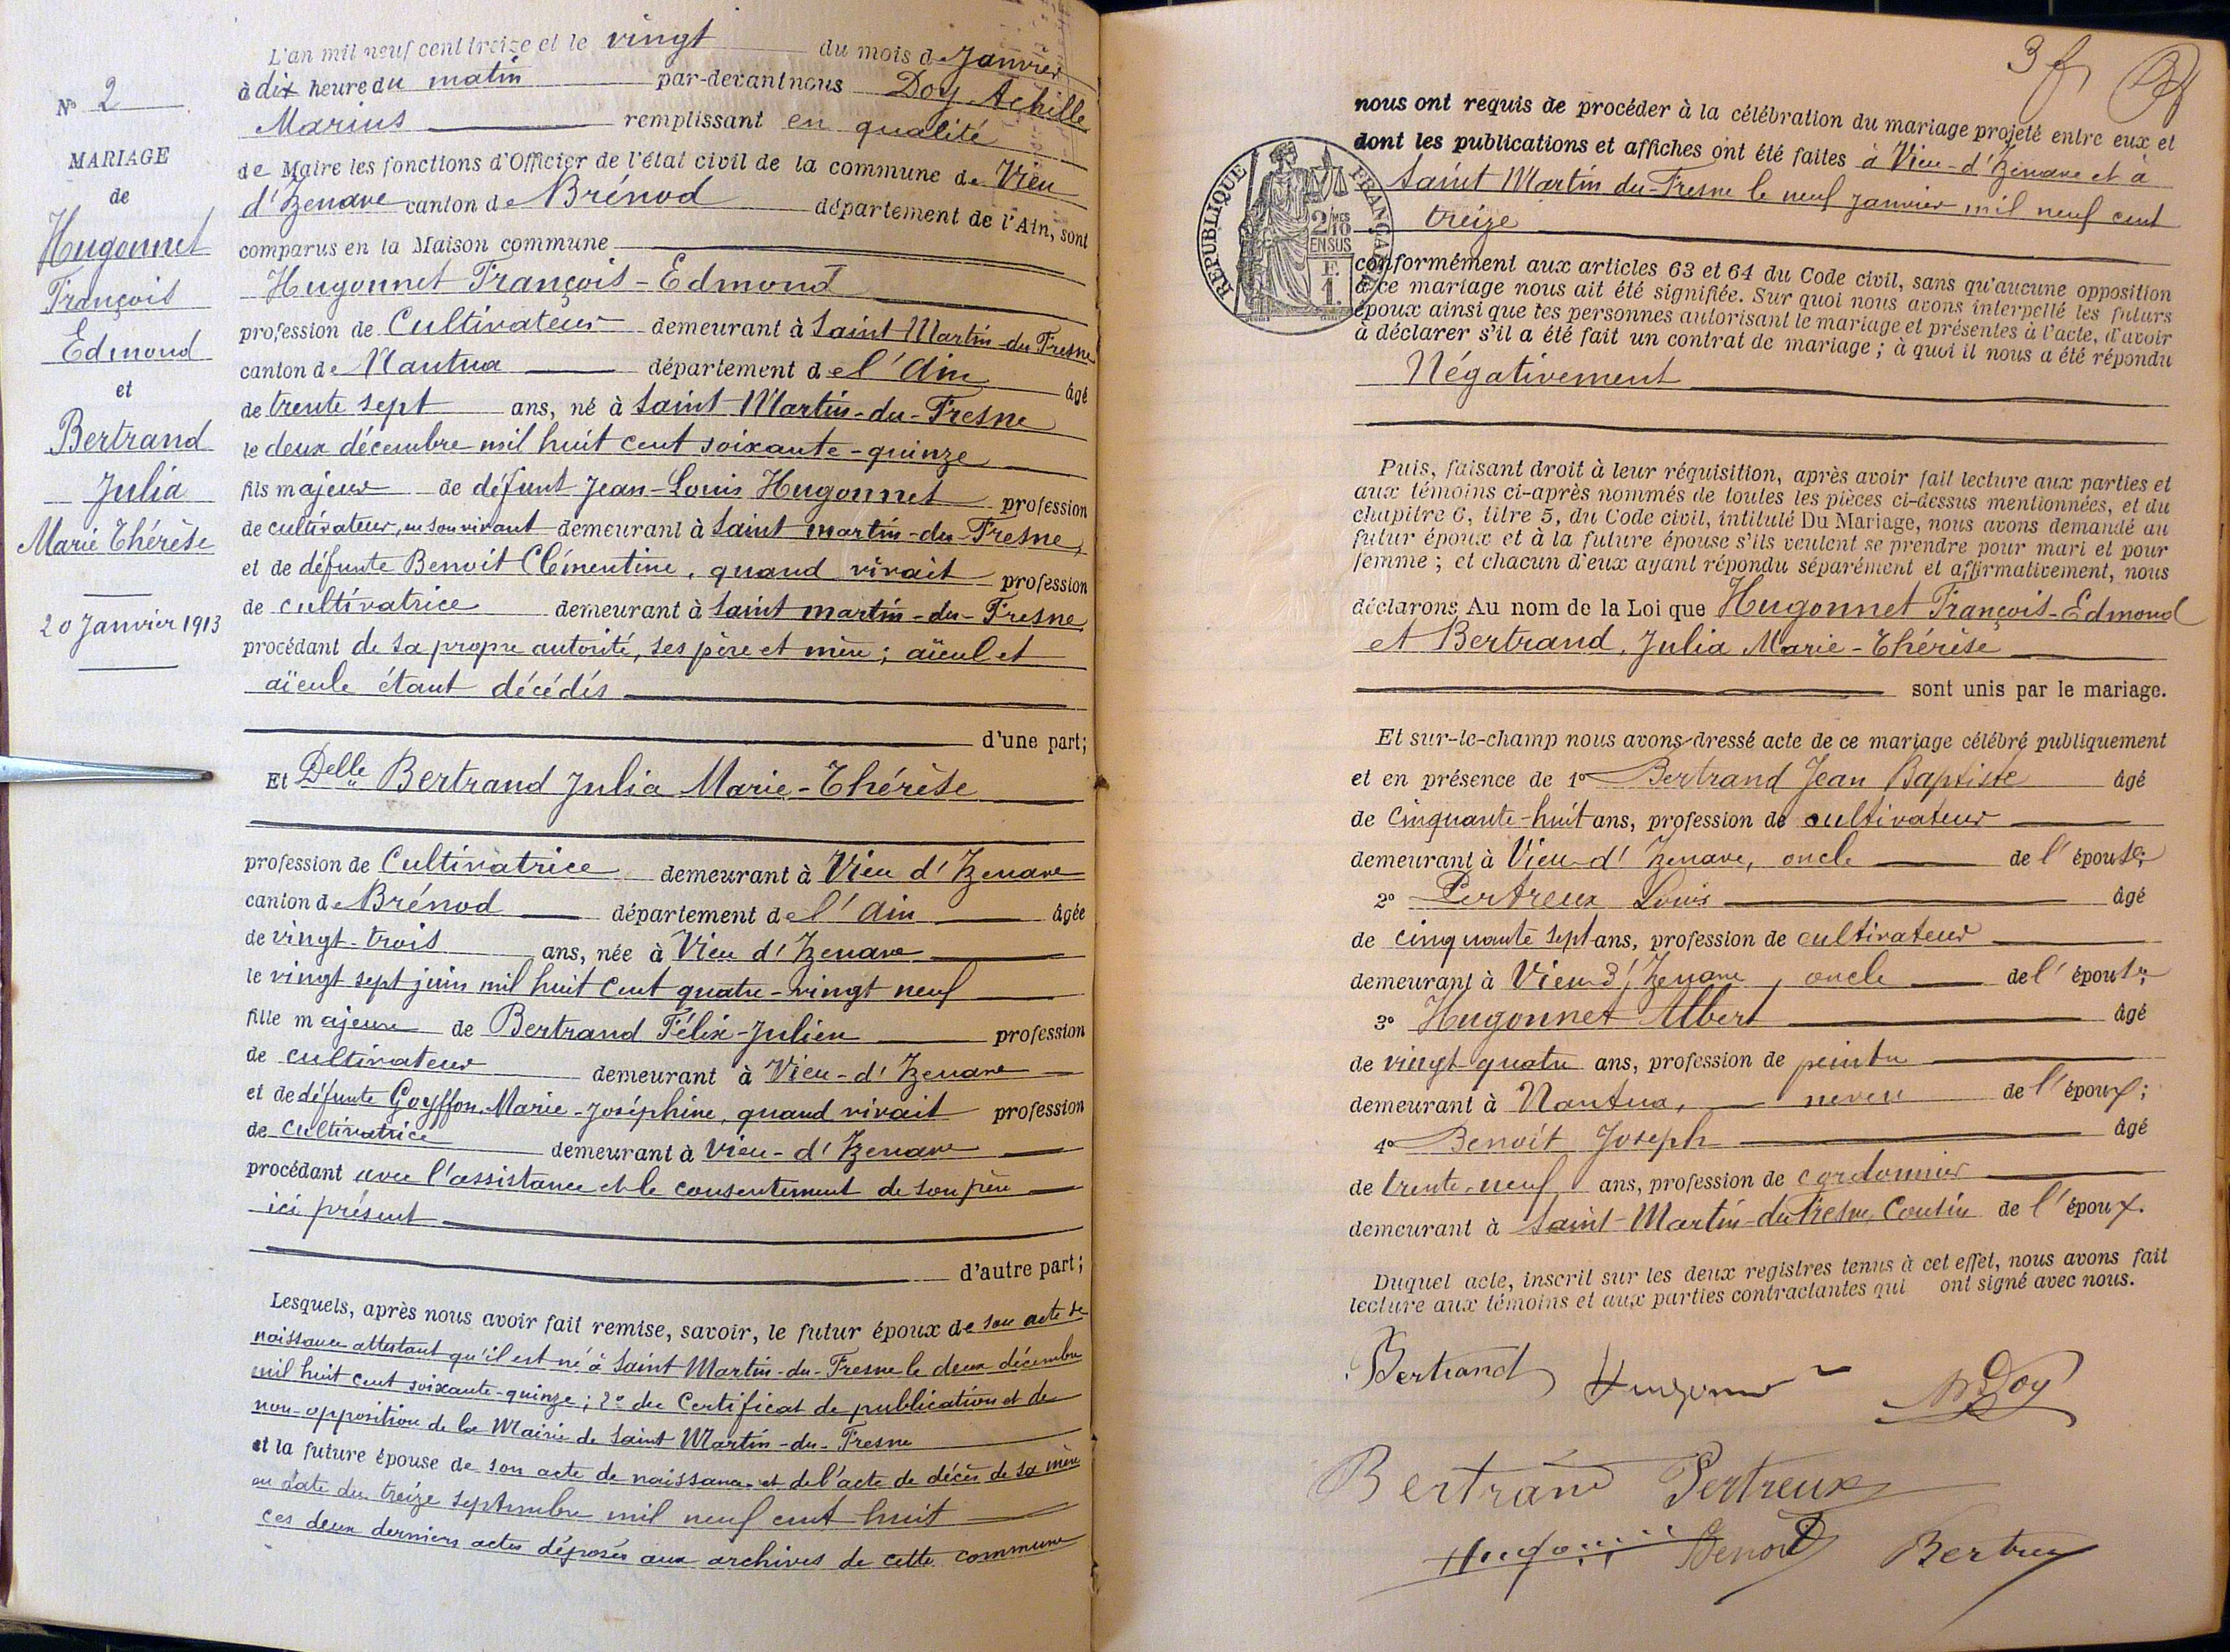 L'an mil neuf cent treize et le vingt du mois de Janvier
à dix heure du matin par-devant nous Doy Achille
Marius remplissant en qualité
de Maire les fonctions d'Officier de l'état civil de la commune de Vieu
d'Izenave canton de Brénod département de l'Ain, sont
comparus en la Maison commune
Hugonnet François-Edmond
profession de Cultivateur demeurant à Saint Martin-du Fresne
canton de Nantua département de l'Ain âgé
de trente sept ans, né à Saint Martin-du-Fresne
le deux décembre mil huit cent soixante-quinze
fils majeur de défunt Jean-Louis Hugonnet profession
de cultivateur, en son vivant demeurant à Saint martin-du-Fresne,
et de défunte Benoit Clémentine, quand vivait profession
de cultivatrice demeurant à Saint martin-du-Fresne
procédant de sa propre autorité, ses père et mère; aïeul et
aïeule étant décédés
d'une part;
Et Delle Bertrand Julia Marie-Thérèse
profession de Cultivatrice demeurant à Vieu d'Izenave
canton de Brénod département de l'Ain âgée
de vingt-trois ans, née à Vieu d'Izenave
le vingt sept juin mil huit cent quatre-vingt neuf
fille majeure de Bertrand Félix-Julien profession
de cultivateur demeurant à Vieu-d'Izenave
et de défunte Goyffon Marie-Joséphine, quand vivait profession
de Cultivatrice demeurant à Vieu-d'Izenave
procédant avec l'assistance et le consentement de son père
ici présent
d'autre part;
Lesquels, après nous avoir fait remise, savoir, le futur époux de son acte de
naissance attestant qu'il est né à Saint Martin-du-Fresne le deux décembre
mil huit cent soixante-quinze; 2° du Certificat de publication et de
non-opposition de la Mairie de Saint Martin-du-Fresne
et la future épouse de son acte de naissance et de l'acte de décès de sa mère
en date du treize septembre mil neuf cent huit
ces deux derniers actes déposés aux archives de cette commune
N° 2
MARIAGE
de
Hugonnet
François
Edmond
et
Bertrand
Julia
Marie Thérèse
20 Janvier 1913
3 f
nous ont requis de procéder à la célébration du mariage projeté entre eux et
dont les publications et affiches ont été faites à Vieu-d'Izenave et à
Saint Martin du-Fresne le neuf Janvier mil neuf cent
treize
REPUBLIQUE FRANÇAISE
2/10 MES
EN SUS
F.
1.
conformément aux articles 63 et 64 du Code civil, sans qu'aucune opposition
à ce mariage nous ait été signifiée. Sur quoi nous avons interpellé les futurs
époux ainsi que les personnes autorisant le mariage et présentes à l'acte, d'avoir
à déclarer s'il a été fait un contrat de mariage; à quoi il nous a été répondu
Négativement
Puis, faisant droit à leur réquisition, après avoir fait lecture aux parties et
aux témoins ci-après nommés de toutes les pièces ci-dessus mentionnées, et du
chapitre 6, titre 5, du Code civil, intitulé Du Mariage, nous avons demandé au
futur époux et à la future épouse s'ils veulent se prendre pour mari et pour
femme; et chacun d'eux ayant répondu séparément et affirmativement, nous
déclarons Au nom de la Loi que Hugonnet François-Edmond
et Bertrand, Julia Marie-Thérèse
sont unis par le mariage.
Et sur-le-champ nous avons dressé acte de ce mariage célébré publiquement
et en présence de 1° Bertrand Jean Baptiste âgé
de Cinquante-huit ans, profession de cultivateur
demeurant à Vieu-d'Izenave, oncle de l'épouse;
2° Pertreux Louis âgé
de cinquante sept ans, profession de cultivateur
demeurant à Vieu-d'Izenave, oncle de l'épouse;
3° Hugonnet Albert âgé
de vingt-quatre ans, profession de peintre
demeurant à Nantua, neveu de l'époux;
4° Benoit Joseph âgé
de trente-neuf ans, profession de cordonnier
demeurant à Saint-Martin-du Fresne, Cousin de l'époux.
Duquel acte, inscrit sur les deux registres tenus à cet effet, nous avons fait
lecture aux témoins et aux parties contractantes qui ont signé avec nous.
Bertrand Hugonnet Doy
Bertrand Pertreux
Hugonnet Benoit Bertrand